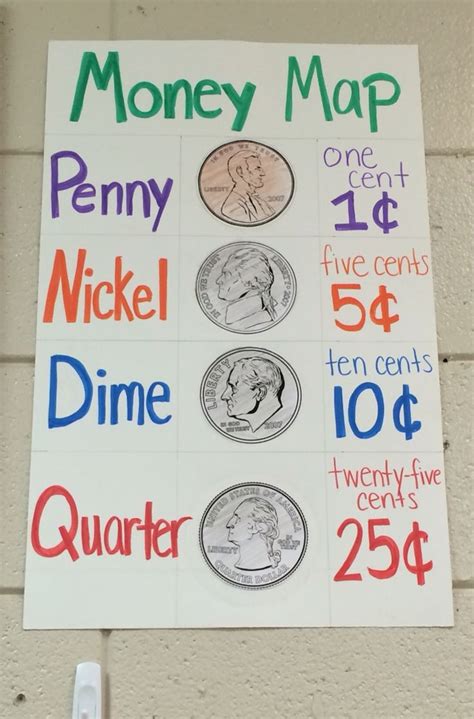 Money Map
Penny
IN GOD WE TRUST
LIBERTY
2007
one
cent
1¢
Nickel
IN GOD WE TRUST
LIBERTY
2007
five cents
5¢
Dime
LIBERTY
IN GOD
WE TRUST
2007
ten cents
10¢
Quarter
UNITED STATES OF AMERICA
LIBERTY
IN GOD WE
TRUST
QUARTER DOLLAR
twenty-five
cents
25¢